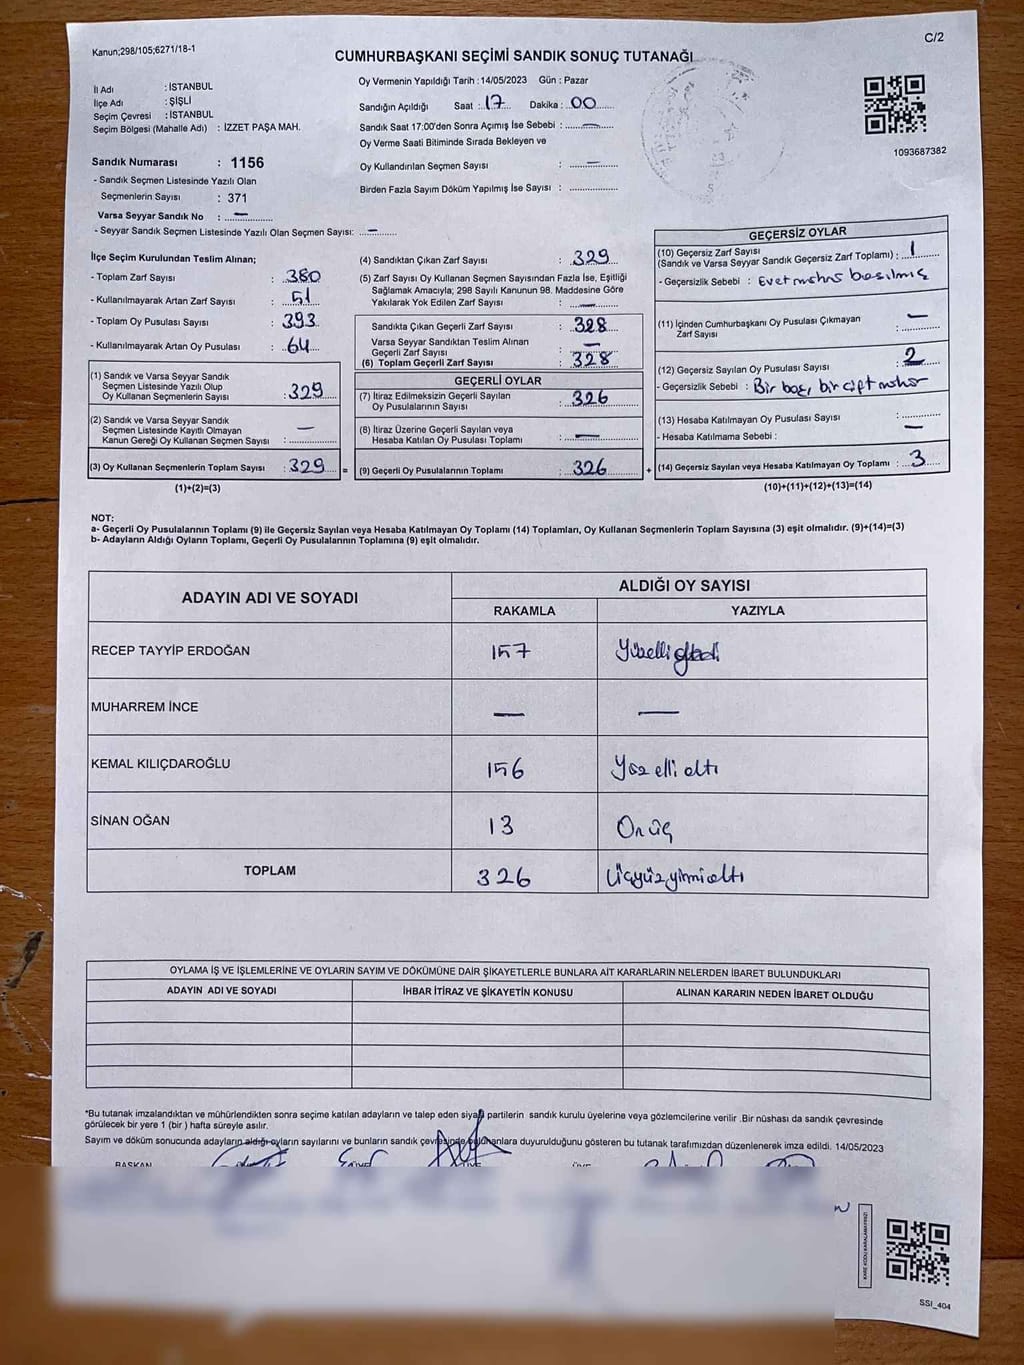 Kanun;298/105;6271/18-1
C/2
CUMHURBAŞKANI SEÇİMİ SANDIK SONUÇ TUTANAĞI
İl Adı : İSTANBUL
İlçe Adı : ŞİŞLİ
Seçim Çevresi : İSTANBUL
Seçim Bölgesi (Mahalle Adı) : İZZET PAŞA MAH.
Sandık Numarası : 1156
- Sandık Seçmen Listesinde Yazılı Olan
Seçmenlerin Sayısı : 371
Varsa Seyyar Sandık No : —
- Seyyar Sandık Seçmen Listesinde Yazılı Olan Seçmen Sayısı: —
Oy Vermenin Yapıldığı Tarih : 14/05/2023 Gün : Pazar
Sandığın Açıldığı Saat : 17 Dakika : 00
Sandık Saat 17:00'den Sonra Açımış İse Sebebi : —
Oy Verme Saati Bitiminde Sırada Bekleyen ve
Oy Kullandırılan Seçmen Sayısı : —
Birden Fazla Sayım Döküm Yapılmış İse Sayısı :
1093687382
İlçe Seçim Kurulundan Teslim Alınan;
- Toplam Zarf Sayısı : 380
- Kullanılmayarak Artan Zarf Sayısı : 51
- Toplam Oy Pusulası Sayısı : 393
- Kullanılmayarak Artan Oy Pusulası : 64
(1) Sandık ve Varsa Seyyar Sandık
Seçmen Listesinde Yazılı Olup
Oy Kullanan Seçmenlerin Sayısı : 329
(2) Sandık ve Varsa Seyyar Sandık
Seçmen Listesinde Kayıtlı Olmayan
Kanun Gereği Oy Kullanan Seçmen Sayısı : —
(3) Oy Kullanan Seçmenlerin Toplam Sayısı : 329 =
(1)+(2)=(3)
(4) Sandıktan Çıkan Zarf Sayısı : 329
(5) Zarf Sayısı Oy Kullanan Seçmen Sayısından Fazla İse, Eşitliği
Sağlamak Amacıyla; 298 Sayılı Kanunun 98. Maddesine Göre
Yakılarak Yok Edilen Zarf Sayısı : —
Sandıkta Çıkan Geçerli Zarf Sayısı : 328
Varsa Seyyar Sandıktan Teslim Alınan
Geçerli Zarf Sayısı : —
(6) Toplam Geçerli Zarf Sayısı : 328
GEÇERLİ OYLAR
(7) İtiraz Edilmeksizin Geçerli Sayılan
Oy Pusulalarının Sayısı : 326
(8) İtiraz Üzerine Geçerli Sayılan veya
Hesaba Katılan Oy Pusulası Toplamı : —
(9) Geçerli Oy Pusulalarının Toplamı : 326 +
GEÇERSİZ OYLAR
(10) Geçersiz Zarf Sayısı
(Sandık ve Varsa Seyyar Sandık Geçersiz Zarf Toplamı) : 1
- Geçersizlik Sebebi : Evet mührü basılmış
(11) İçinden Cumhurbaşkanı Oy Pusulası Çıkmayan
Zarf Sayısı : —
(12) Geçersiz Sayılan Oy Pusulası Sayısı : 2
- Geçersizlik Sebebi : Bir boş, bir çift mühür
(13) Hesaba Katılmayan Oy Pusulası Sayısı : —
- Hesaba Katılmama Sebebi :
(14) Geçersiz Sayılan veya Hesaba Katılmayan Oy Toplamı : 3
(10)+(11)+(12)+(13)=(14)
NOT:
a- Geçerli Oy Pusulalarının Toplamı (9) ile Geçersiz Sayılan veya Hesaba Katılmayan Oy Toplamı (14) Toplamları, Oy Kullanan Seçmenlerin Toplam Sayısına (3) eşit olmalıdır. (9)+(14)=(3)
b- Adayların Aldığı Oyların Toplamı, Geçerli Oy Pusulalarının Toplamına (9) eşit olmalıdır.
ADAYIN ADI VE SOYADI ALDIĞI OY SAYISI
RAKAMLA YAZIYLA
RECEP TAYYİP ERDOĞAN 157 Yüzelli
MUHARREM İNCE — —
KEMAL KILIÇDAROĞLU 156 Yüz elli altı
SİNAN OĞAN 13 On üç
TOPLAM 326 Üçyüzyirmialtı
OYLAMA İŞ VE İŞLEMLERİNE VE OYLARIN SAYIM VE DÖKÜMÜNE DAİR ŞİKAYETLERLE BUNLARA AİT KARARLARIN NELERDEN İBARET BULUNDUKLARI
ADAYIN ADI VE SOYADI İHBAR İTİRAZ VE ŞİKAYETİN KONUSU ALINAN KARARIN NEDEN İBARET OLDUĞU
*Bu tutanak imzalandıktan ve mühürlendikten sonra seçime katılan adayların ve talep eden siyasi partilerin sandık kurulu üyelerine veya gözlemcilerine verilir .Bir nüshası da sandık çevresinde
görülecek bir yere 1 (bir ) hafta süreyle asılır.
Sayım ve döküm sonucunda adayların aldığı oyların sayılarını ve bunların sandık çevresinde bulunanlara duyurulduğunu gösteren bu tutanak tarafımızdan düzenlenerek imza edildi. 14/05/2023
BAŞKAN ÜYE ÜYE
KARE KODU KARALAMAYINIZ!
SSI_404